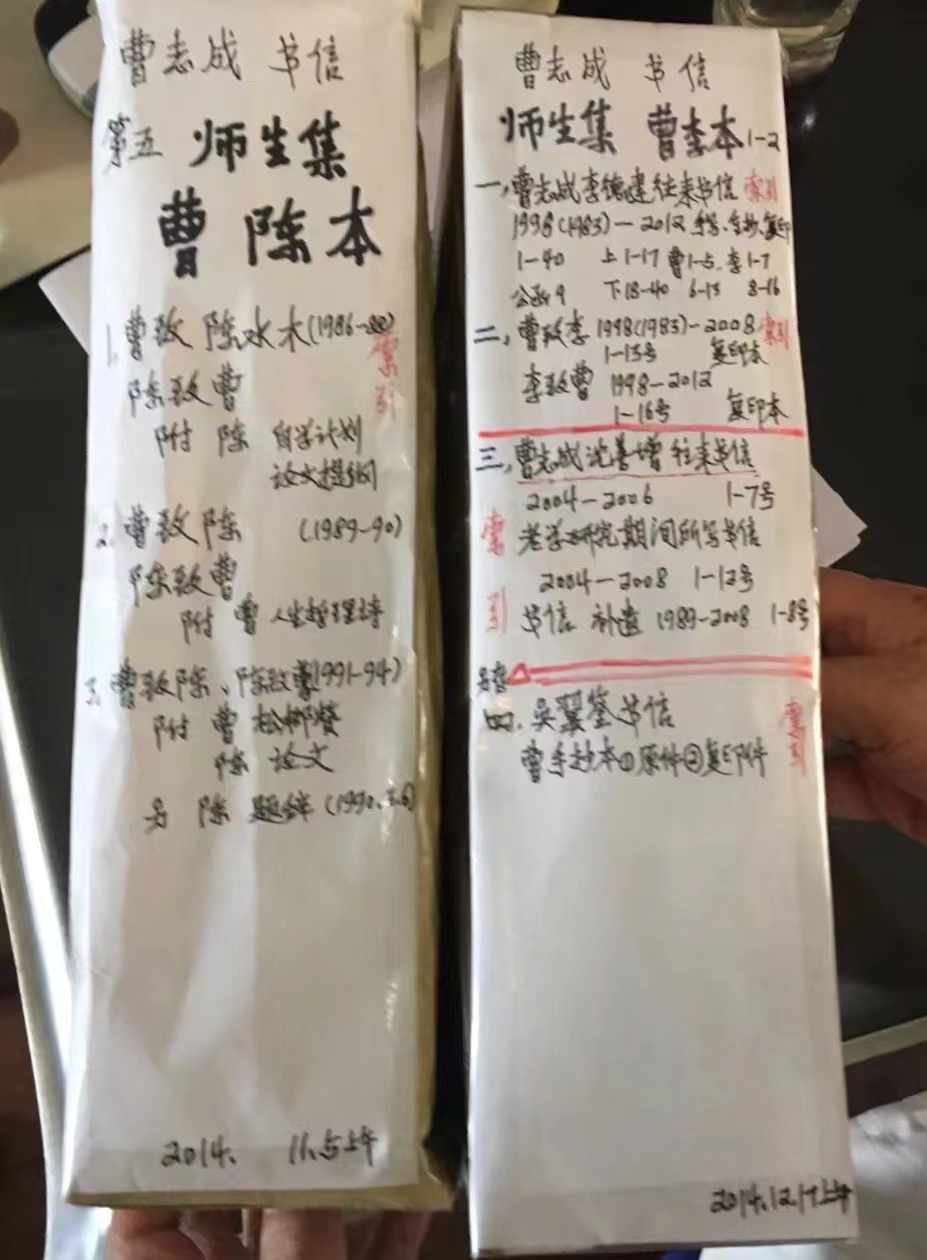 曹志成 书信
第五 师生集
曹 陈本
1. 曹致 陈水木(1986-88)
索引
陈致曹
附 陈 自学计划
论文提纲
2. 曹致陈 (1989-90)
陈致曹
附 曹 人生哲理诗
3. 曹致陈、陈致曹(1991-94)
附 曹
陈 论文
另 陈 题辞
2014. 11.5上午
曹志成 书信
师生集 曹李本1-2
一,曹志成李德建往来书信 索引
1998(1983)—2012 复印
1-40 上1-17 曹1-5. 李1-7
公函9 下18-40 6-13 8-16
二, 曹致李 1998(1983)-2008 索引
1-13号 复印本
李致曹 1998-2012
1-16号 复印本
三,曹志成沈善增往来书信
2004-2006 1-7号
索引
老学研究期间所写书信
2004-2008 1-12号
书信 补遗 1989-2008 1-8号
四. 吴翼鉴书信
索引
曹手抄本①原件②复印件
2014.12.17上午